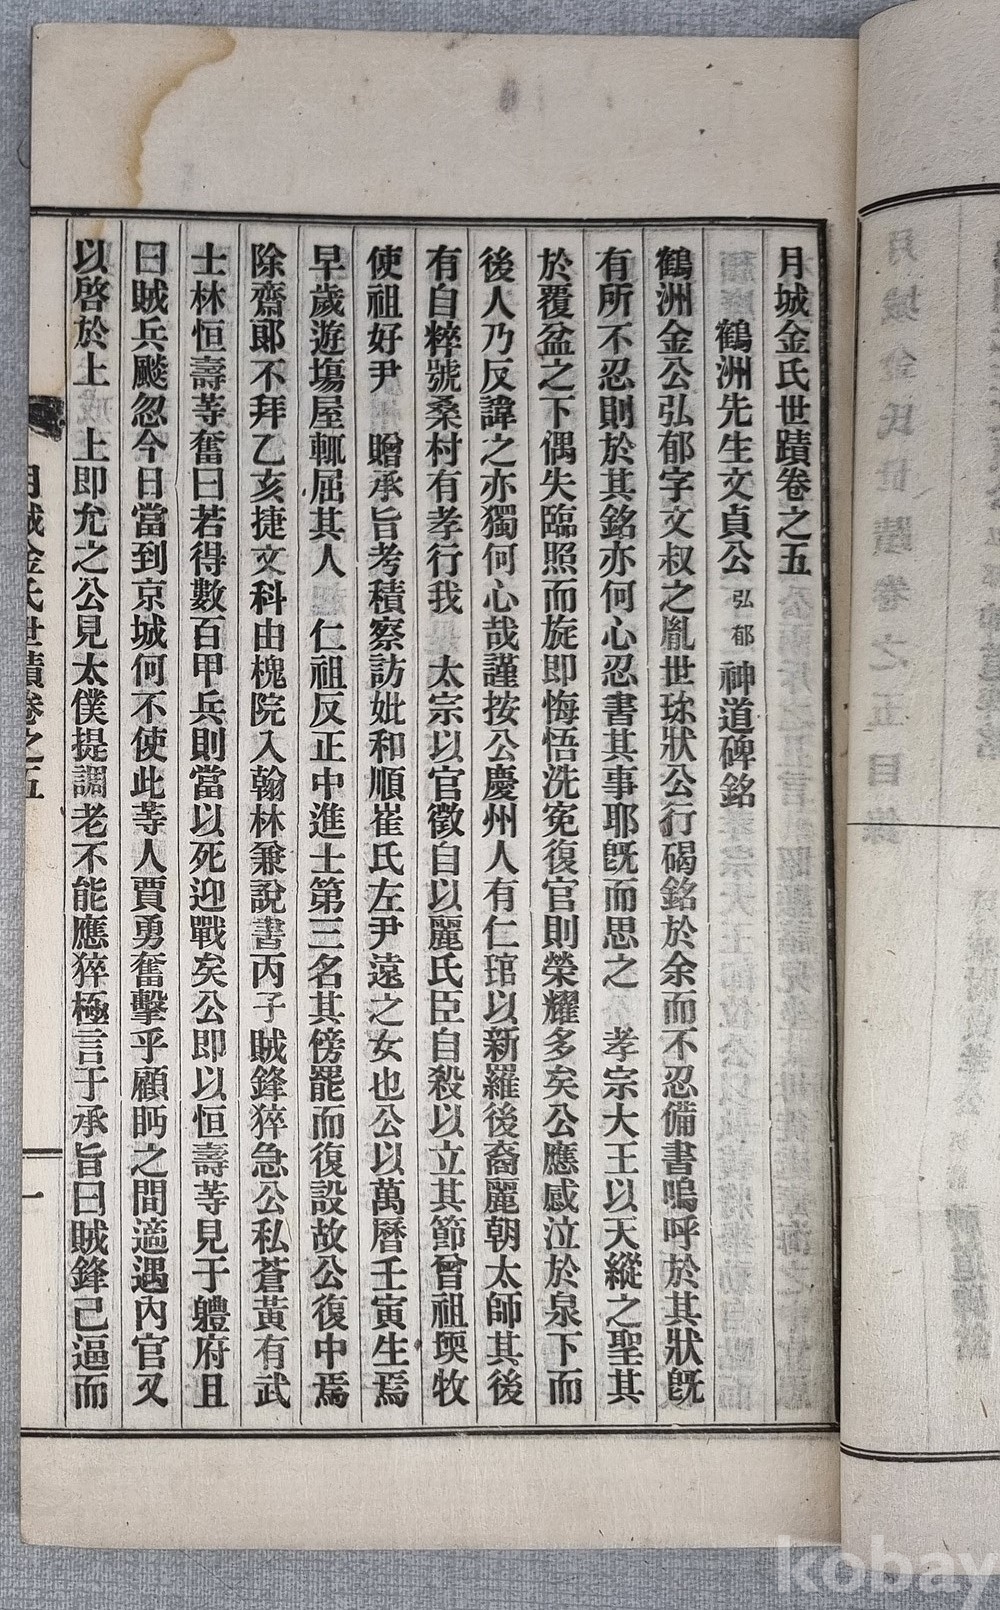 月城金氏世蹟卷之五
鶴洲先生文貞公弘郁神道碑銘
鶴洲金公弘郁字文叔之胤世珎狀公行碣銘於余而不忍備書嗚呼於其狀旣
有所不忍則於其銘亦何心忍書其事耶旣而思之 孝宗大王以天縱之聖其
於覆盆之下偶失臨照而旋即悔悟洗寃復官則榮耀多矣公應感泣於泉下而
後人乃反諱之亦獨何心哉謹按公慶州人有仁琯以新羅後裔麗朝太師其後
有自粹號桑村有孝行我 太宗以官徵自以麗氏臣自殺以立其節曾祖堧牧
使祖好尹 贈承旨考積察訪妣和順崔氏左尹遠之女也公以萬曆壬寅生焉
早歲遊塲屋輒屈其人 仁祖反正中進士第三名其傍罷而復設故公復中焉
除齋郞不拜乙亥捷文科由槐院入翰林兼說書丙子賊鋒猝急公私蒼黃有武
士林恒壽等奮曰若得數百甲兵則當以死迎戰矣公即以恒壽等見于軆府且
曰賊兵颷忽今日當到京城何不使此等人賈勇奮擊乎顧眄之間適遇內官又
以啓於上 上即允之公見太僕提調老不能應猝極言于承旨曰賊鋒已逼而
月城金氏世蹟卷之五
一
月城金氏世蹟卷之五目錄
kobay